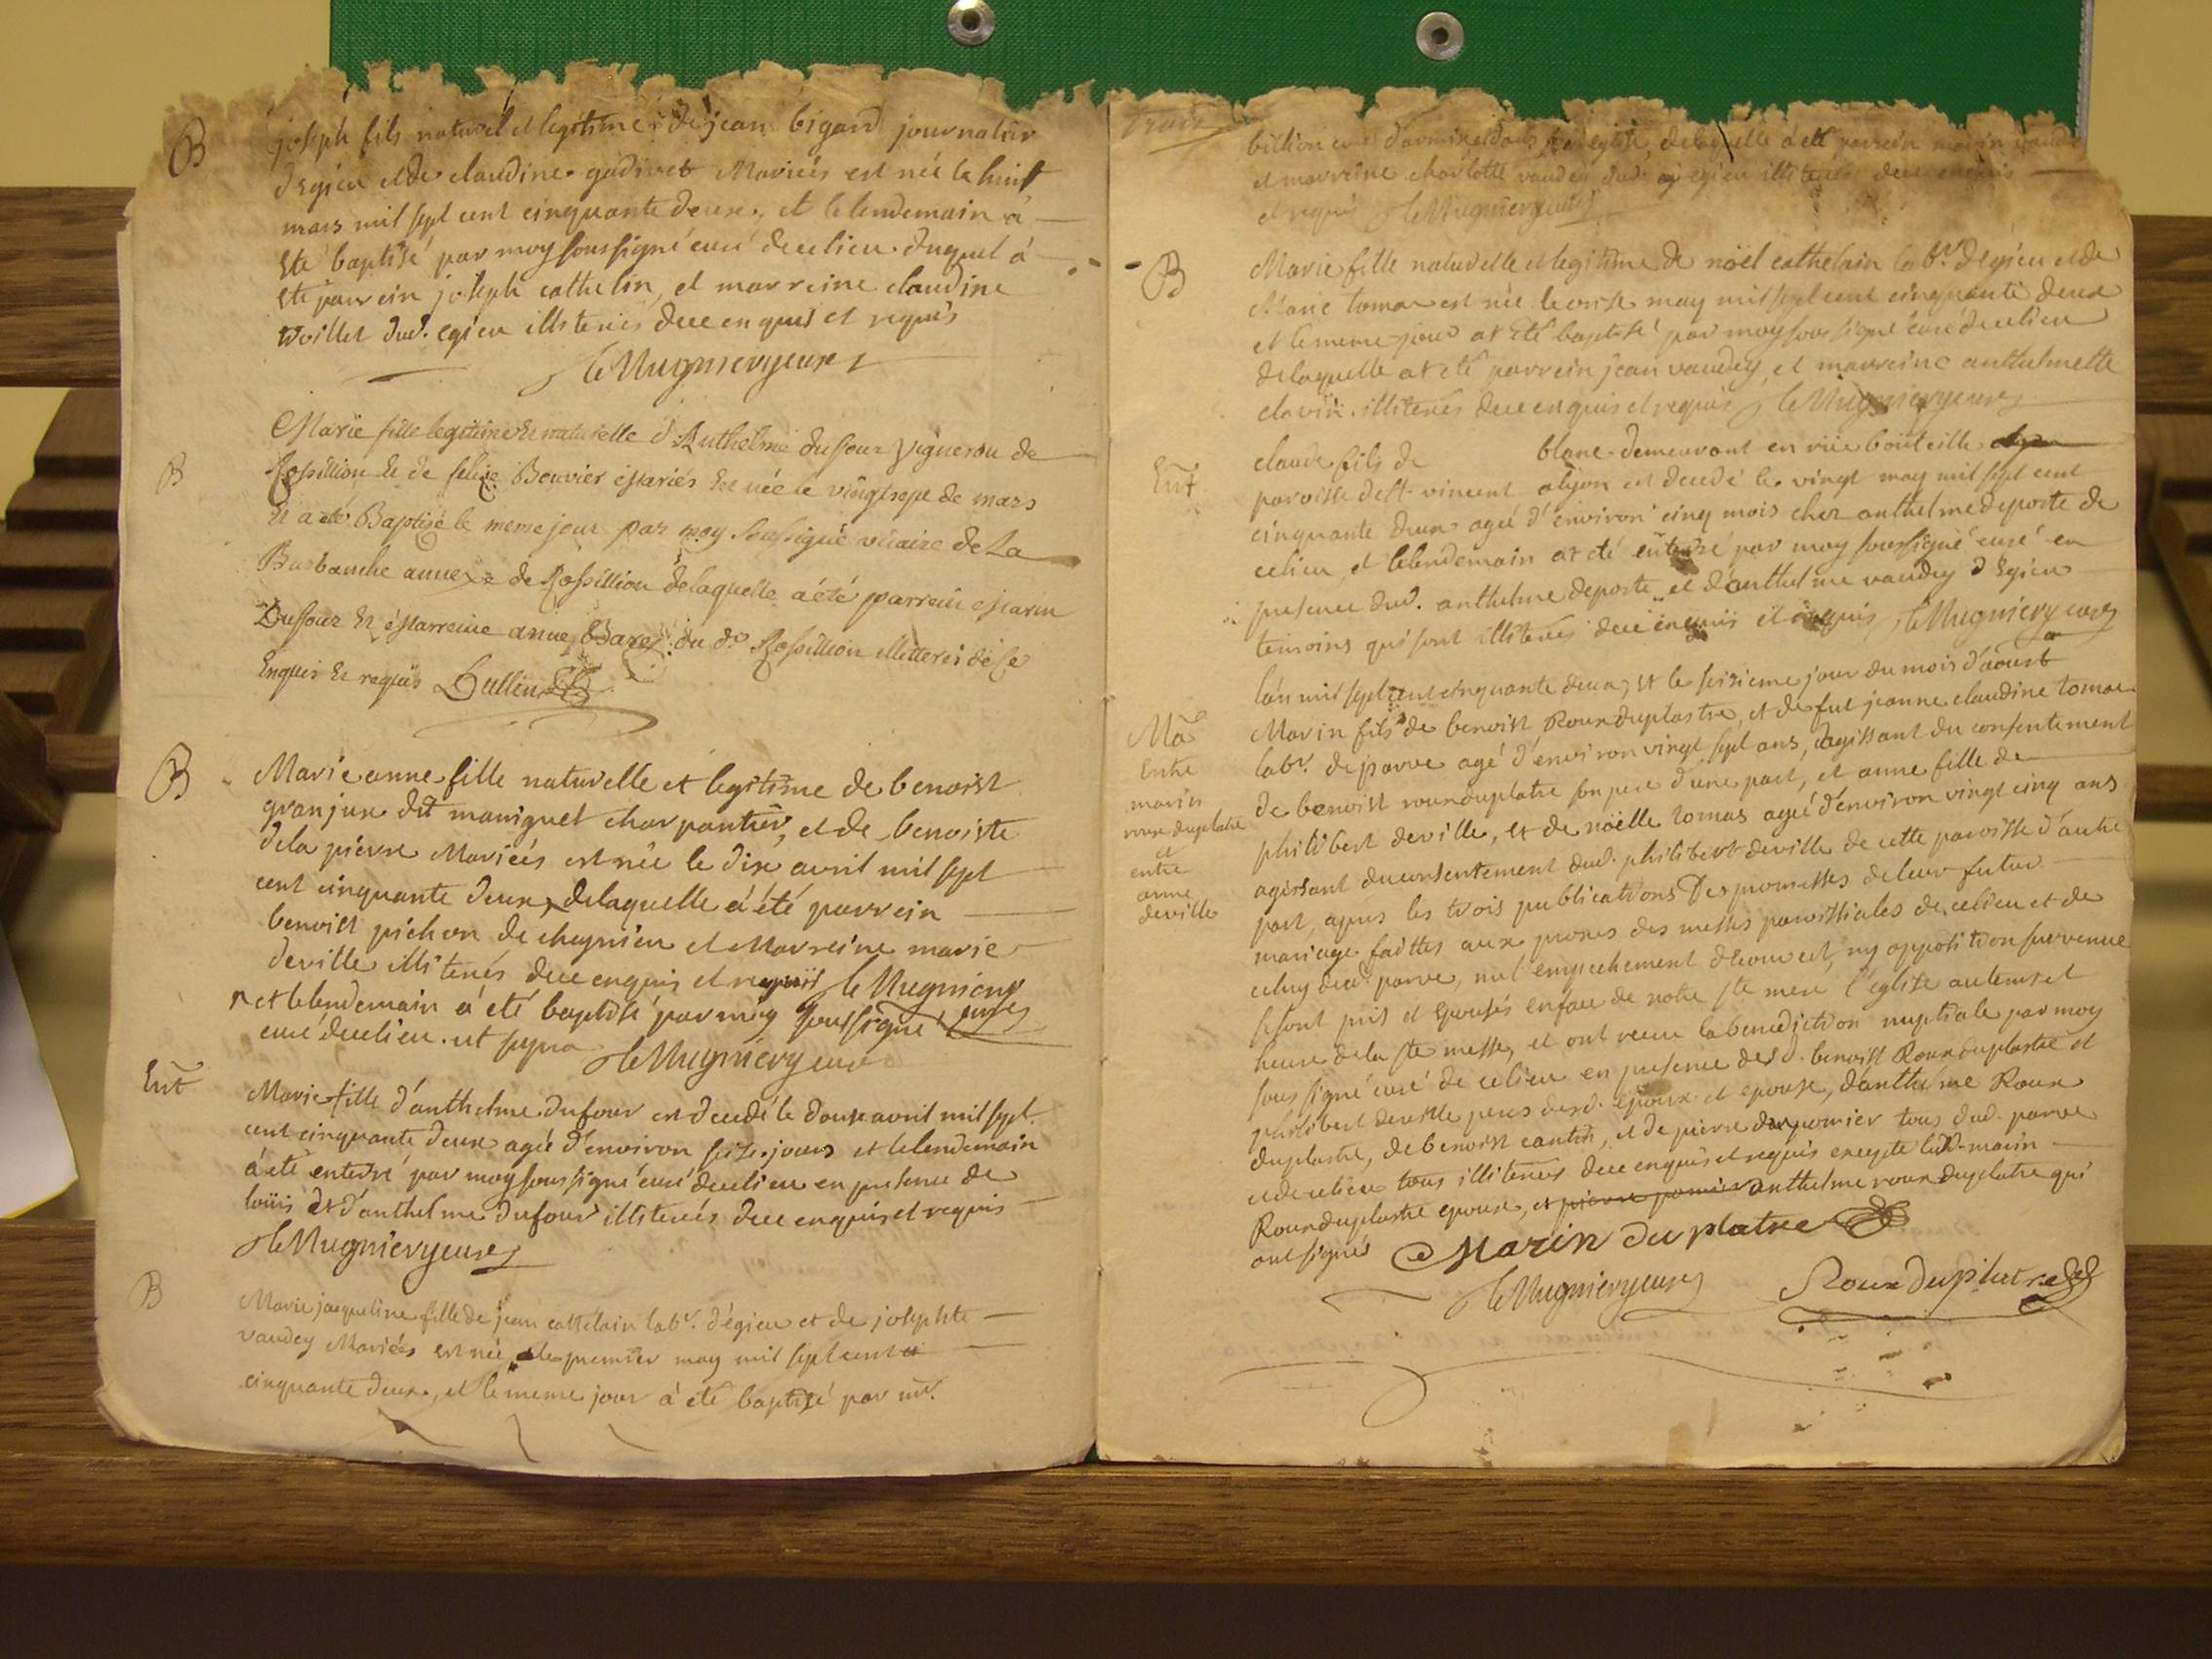 B
joseph fils naturel et legitime de jean bigard journalier
d'egieu et de claudine gadivet Mariés est née le huit
mars mil sept cent cinquante deux, et le lendemain à
été baptisé par moy soussigné curé de ce lieu. duquel à
ete parrein joseph cathelin, et marreine claudine
dud. egieu illiterés de ce enquis et requis
leMugniery curé
B
Marie fille legitime et naturelle d'Anthelme dufour vigneron de
Rossillion et de Bouvier Mariés est née le vingt sept de mars
et a été Baptisé le meme jour par moy soussigné vicaire de La
Burbanche annexe de Rossillion de laquelle a été parrein Marin
Dufour et Marreine anne du dt Rossillion illitterés de ce
Enquis et requis Dullin
B
Marie anne fille naturelle et legitime de benoist
granjux dit maniguet charpantier, et de benoiste
dela pierre Mariés est née le dix avril mil sept
cent cinquante deux, de laquelle a été parrein
benoist pichon de cheynieu et Marreine marie
deville illiterés de ce enquis et requis leMugniery
curé
et le lendemain a été baptisé par moy soussigné
curé de ce lieu. ut supra leMugniery curé
Ent
Marie fille d'anthelme dufour est decedé le douze avril mil sept
cent cinquante deux agée d'environ seize jours et le lendemain
a été enterré par moy soussigné curé de ce lieu en presence de
loüis et d'anthelme dufour illiterés de ce enquis et requis
leMugniery curé
B
Marie jacqueline fille de jean cathelain labr. d'égieu et de josephte
vaudey Mariés est née le premier may mil sept cent
cinquante deux, et le meme jour à été baptisé par mr.
trois
billion curé d'armix dans eglise, de laquelle a été parrein marin vaudey
et marreine charlotte vaudey dud. egieu illiterés de ce enquis
et requis leMugniery curé
B
Marie fille naturelle et legitime de noël cathelain labr. d'egieu et de
Marie tomas est née le onse may mil sept cent cinquante deux
et le meme jour at été baptisé par moy soussigné curé de ce lieu
de laquelle at eté parrein jean vaudey, et marreine anthelmette
clavin. illiterés de ce enquis et requis leMugniery curé
Ent
claude fils de blanc demeurant en rüe bouteille
paroisse de St. vincent a lyon est decedé le vingt may mil sept cent
cinquante deux agé d'environ cinq mois chez anthelme deporte de
ce lieu, et le lendemain at eté enterré par moy soussigné curé en
presence dud. anthelme deporte et d'anthelme vaudey d'Egieu
temoins qui sont illiterés de ce enquis et requis leMugniery curé
Ma
Entre
marin
roux duplatre
et
entre
anne
deville
lan mil sept cent cinquante deux, et le seizieme jour du mois d'aoust
Marin fils de benoist Roux duplastre, et de fut jeanne claudine tomas
labr. de parve agé d'environ vingt sept ans, agissant du consentement
de benoist roux duplatre son pere d'une part, et anne fille de
philibert deville, et de noëlle tomas agée d'environ vingt cinq ans
agissant du consentement dud. philibert deville de cette paroisse d'autre
part, apres les trois publications Des promesses de leur futur
mariage faittes aux prones des messes paroissiales de ce lieu et de
celuy de parve, nul empechement decouvert, ny opposition survenue
se sont pris et Epousés en face de notre ste mere l'église au tems et
heure de la ste messe, et ont receu la benediction nuptiale par moy
sous signé curé de ce lieu en presence desd. benoist Roux duplastre et
philibert deville peres desd. epoux et epouse, d'anthelme Roux
duplastre, de benoist cantin, et de pierre pomier tous dud. parve
et de ce lieu tous illiterés de ce enquis et requis excepte led. marin
Roux duplastre epoux, et pierre pomier anthelme roux duplatre qui
ont signés Marin du platre
leMugniery curé Roux duplatre